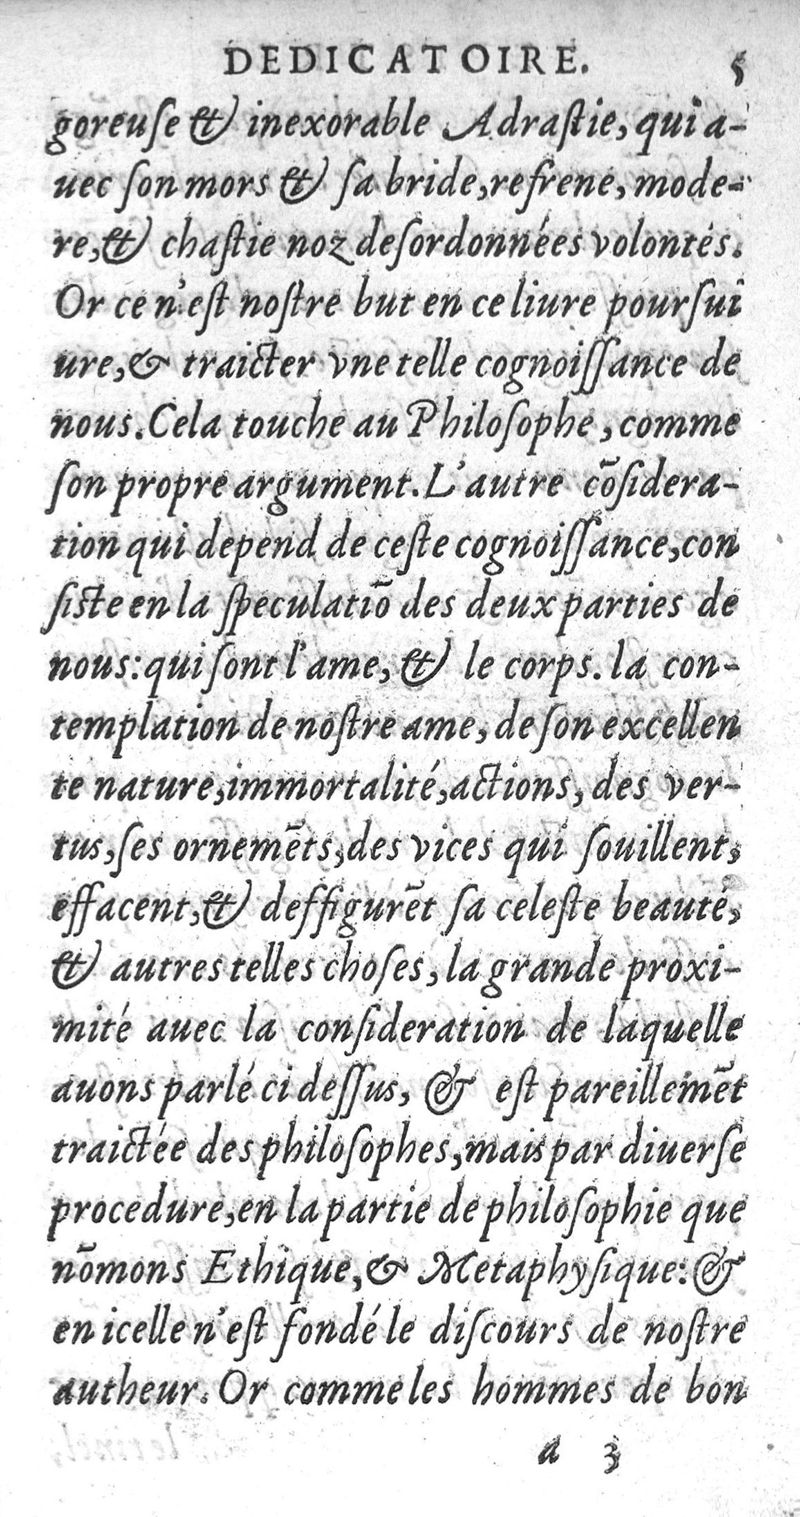 DEDICATOIRE. 5
goreuſe & inexorable Adraſtie, qui a-
uec ſon mors & ſa bride, refrene, mode-
re, & chaſtie noz deſordonnées volontés.
Or ce n'eſt noſtre but en ce liure pourſui
ure, & traicter vne telle cognoiſſance de
nous. Cela touche au Philoſophe, comme
ſon propre argument. L'autre cõſidera-
tion qui depend de ceſte cognoiſſance, con
ſiſte en la ſpeculatiõ des deux parties de
nous: qui ſont l'ame, & le corps. la con-
templation de noſtre ame, de ſon excellen
te nature, immortalité, actions, des ver-
tus, ſes ornemẽts, des vices qui ſouillent,
effacent, & deffigurẽt ſa celeſte beauté,
& autres telles choſes, la grande proxi-
mité auec la conſideration de laquelle
auons parlé ci deſſus, & eſt pareillemẽt
traictée des philoſophes, mais par diuerſe
procedure, en la partie de philoſophie que
nõmons Ethique, & Metaphyſique: &
en icelle n'eſt fondé le diſcours de noſtre
autheur. Or comme les hommes de bon
a 3